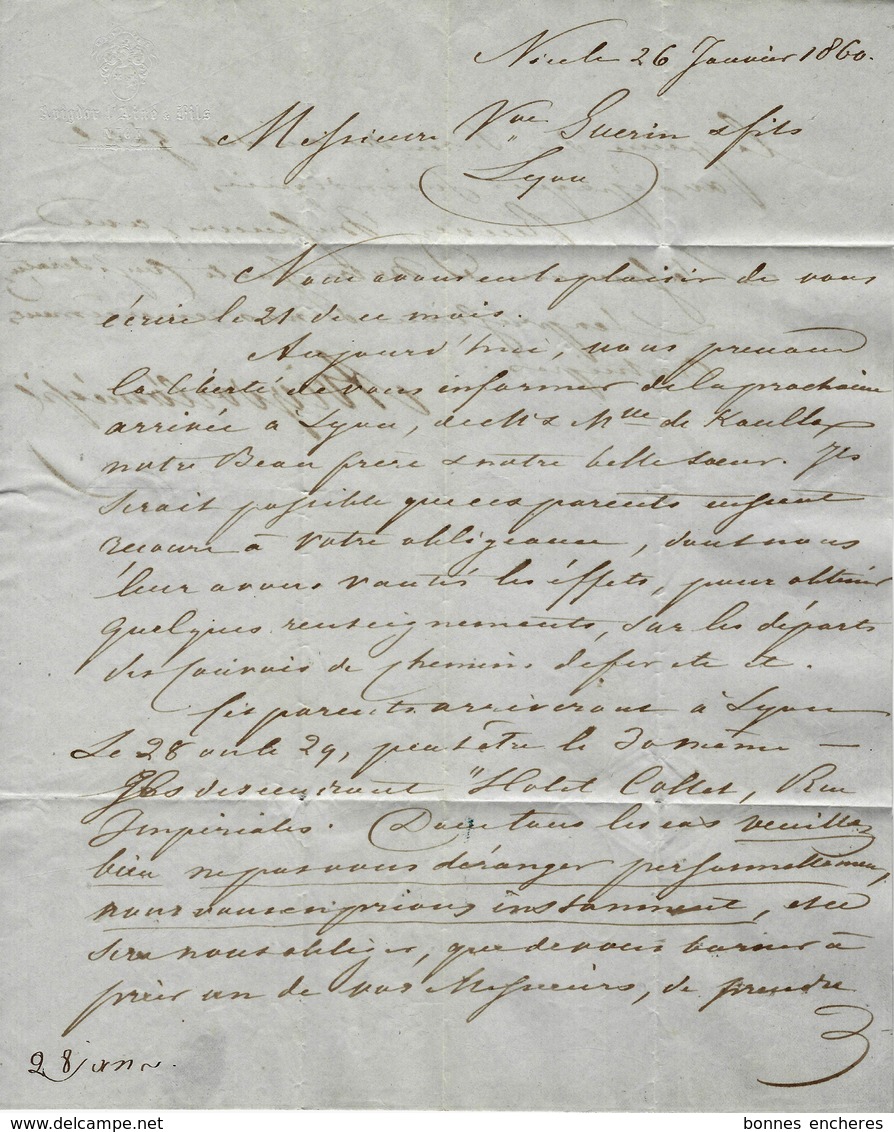 Avigdor l'Aîné & Fils
Nice
Nice le 26 Janvier 1860.
Messieurs Vve Guerin & fils
Lyon
Nous avons eu le plaisir de vous
écrire le 21 de ce mois.
Aujourd'hui, nous prenons
la liberté de vous informer de la prochaine
arrivée à Lyon, de Mr & Mme de Kaulla
notre Beau frère & notre belle sœur. Il
serait possible que ces parents eussent
recours à votre obligeance, dont nous
leur avons vantés les éffets, pour obtenir
quelques renseignements, sur les départs
des Convois de chemins de fer etc etc.
Ces parents arriveront à Lyon
le 28 ou le 29, peut être le 30 même —
Ils descendront "Hotel Collet, Rue
Impériales. Dans tous les cas veuillez
bien ne pas vous déranger personnellement,
nous vous en prions instamment, et ce
sera nous obliger, que de vous borner à
prier un de vos Messieurs, de prendre
28 janv.
bonnes encheres